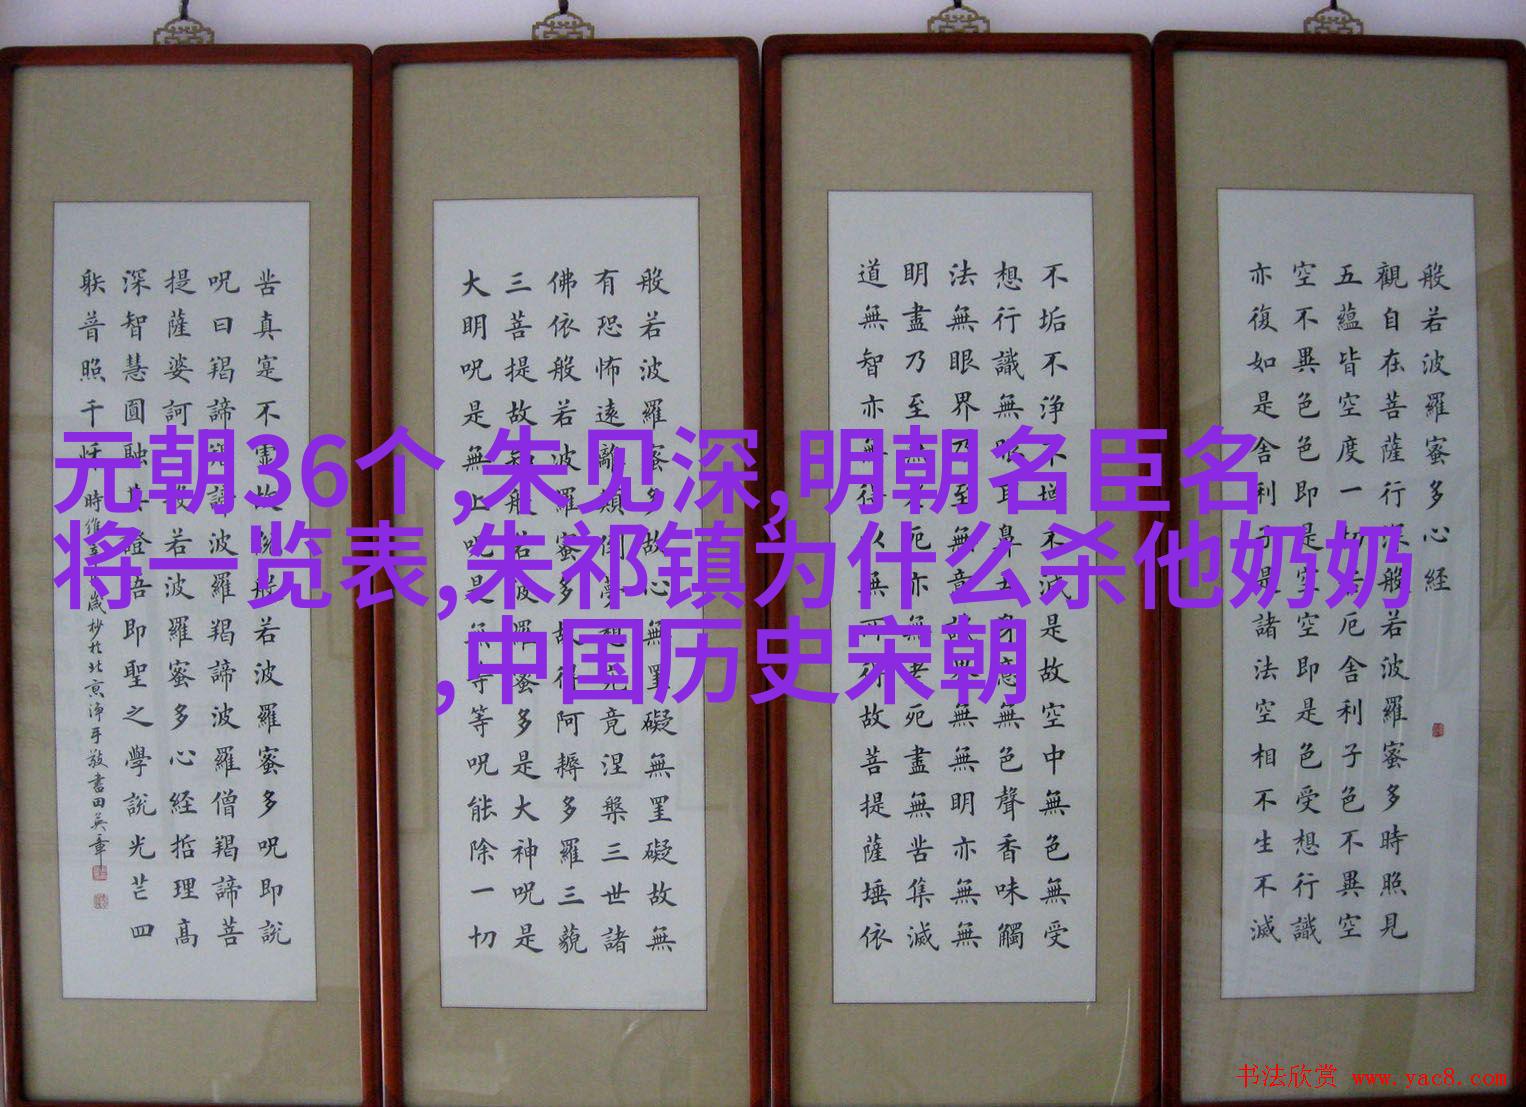 元朝36个,朱见深,明朝名臣名
将一览表,朱祁镇为什么杀他奶奶
,中国历史宋朝
般若波羅蜜多心経
觀自在菩薩行深般若波羅蜜多時照見
五蘊皆空度一切苦厄舍利子色不異空
空不異色色即是空空即是色受想行識
亦復如是舍利子是諸法空相不生不滅
不垢不浄不增不減是故空中無色無受
想行識無眼耳鼻舌身意無色聲香味觸
法無眼界乃至無意識界無無明亦無無
明盡乃至無老死亦無老死盡無苦集滅
道無智亦無得以無所得故菩提薩埵依
般若波羅蜜多故心無罣礙無罣礙故無
有恐怖遠離顛倒夢想究竟涅槃三世諸
佛依般若波羅蜜多故得阿耨多羅三藐
三菩提故知般若波羅蜜多是大神呪是
大明呪是無上呪是無等等呪能除一切
苦真寔不虛故說般若波羅蜜多呪即説
呪曰羯諦羯諦波羅羯諦波羅僧羯諦菩
提薩婆訶般若波羅蜜多心経哲理高
深智慧圓融其證悟即聖之學説光芒四
躲普照千 時維 歲杪於北京淨手敬書田英章
书法欣赏 www.yac8.com